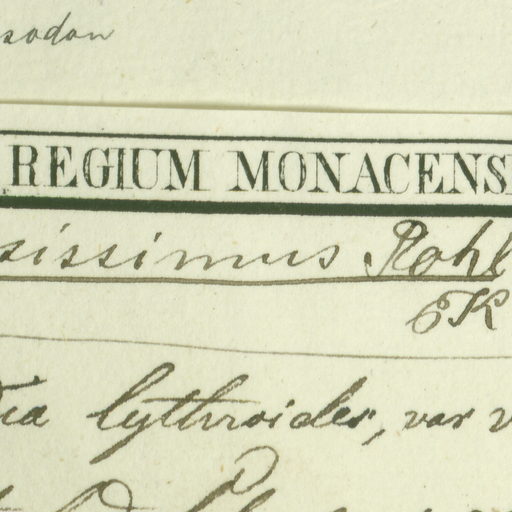 sodon
REGIUM MONACENS
sissimus Rohl
EK
lythroides, var v